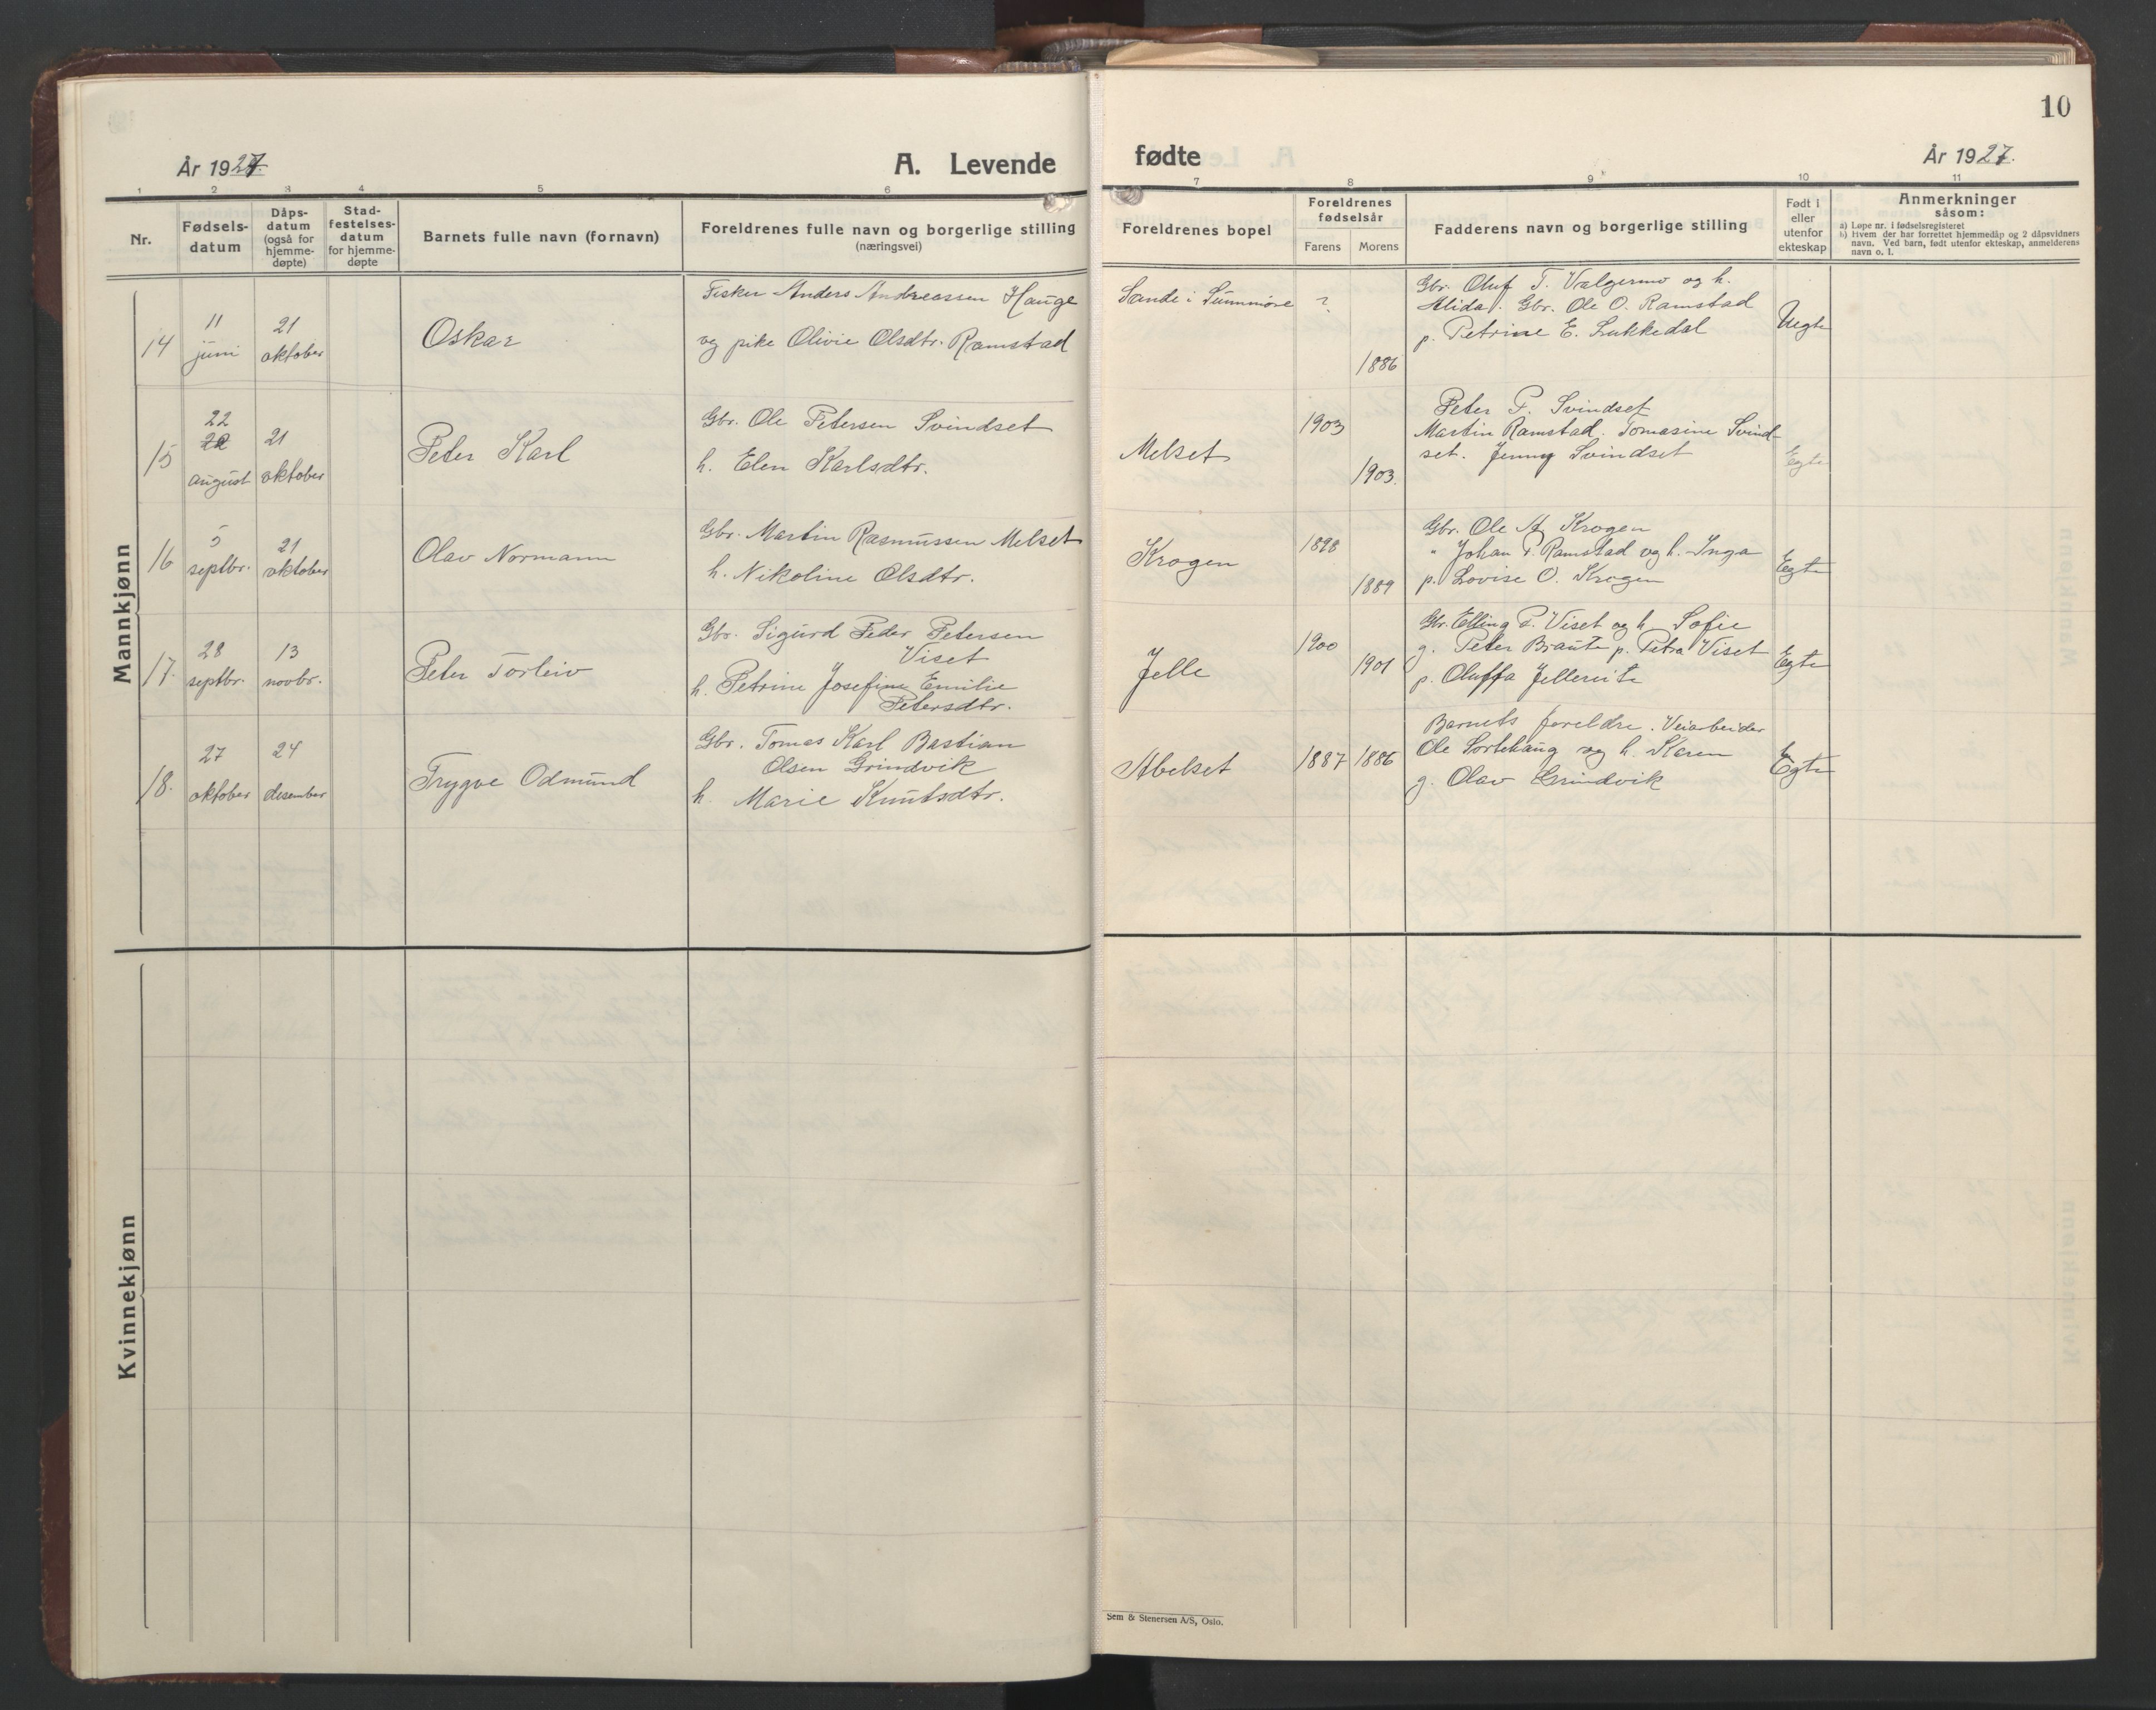 10
År 1927.
A. Levende
fødte
År 1927.
1 2 3 4 5 6 7 8 9 10 11
Nr.
Fødsels-
datum
Dåps-
datum
(også for
hjemme-
døpte)
Stad-
festelses-
datum
for hjemme-
døpte
Barnets fulle navn (fornavn)
Foreldrenes fulle navn og borgerlige stilling
(næringsvei)
Foreldrenes bopel
Foreldrenes
fødselsår
Farens
Morens
Fadderens navn og borgerlige stilling
Født i
eller
utenfor
ekteskap
Anmerkninger
såsom:
a) Løpe nr. i fødselsregisteret
b) Hvem der har forrettet hjemmedåp og 2 dåpsvidners
navn. Ved barn, født utenfor ekteskap, anmelderens
navn o. l.
Mannkjønn
14
11
juni
21
oktober
Oskar
Fisker Anders Andreassen Hauge
og pike Olivie Olsdtr. Ramstad
Sande i Sunnmøre
?
1886
Gbr. Oluf T. Valgermo og h.
Alida. Gbr. Ole O. Ramstad
p. Petrine E. Lukkedal
Uegte
15
22
august
21
oktober
Peter Karl
Gbr. Ole Petersen Svindset
h. Elen Karlsdtr.
Melset
1903
1903.
Peter P. Svindset
Martin Ramstad. Tomasine Svind-
set. Jenny Svindset
Egte
16
5
septbr.
21
oktober
Olav Normann
Gbr. Martin Rasmussen Melset
h. Nikoline Olsdtr.
Krogen
1898
1889
Gbr. Ole A. Krogen
" Johan P. Ramstad og h. Inga
p. Lovise O. Krogen
Egte
17.
28
septbr.
13
novbr.
Peter Torleiv
Gbr. Sigurd Peder Petersen
Viset
h. Petrine Josefine Emilie
Petersdtr.
Jelle
1900
1901
Gbr. Elling P. Viset og h. Sofie
g. Peter Braute p. Petra Viset
p. Oluffa
Egte
18.
27
oktober
24
desember
Trygve Odmund
Gbr. Tomas Karl Bastian
Olsen Grindvik
h. Marie Knutsdtr.
Abelset
1887
1886
Barnets foreldre. Veiarbeider
Ole Sortehaug og h. Karen
g. Olav Grindvik
Egte
Kvinnekjønn
Sem & Stenersen A/S, Oslo.